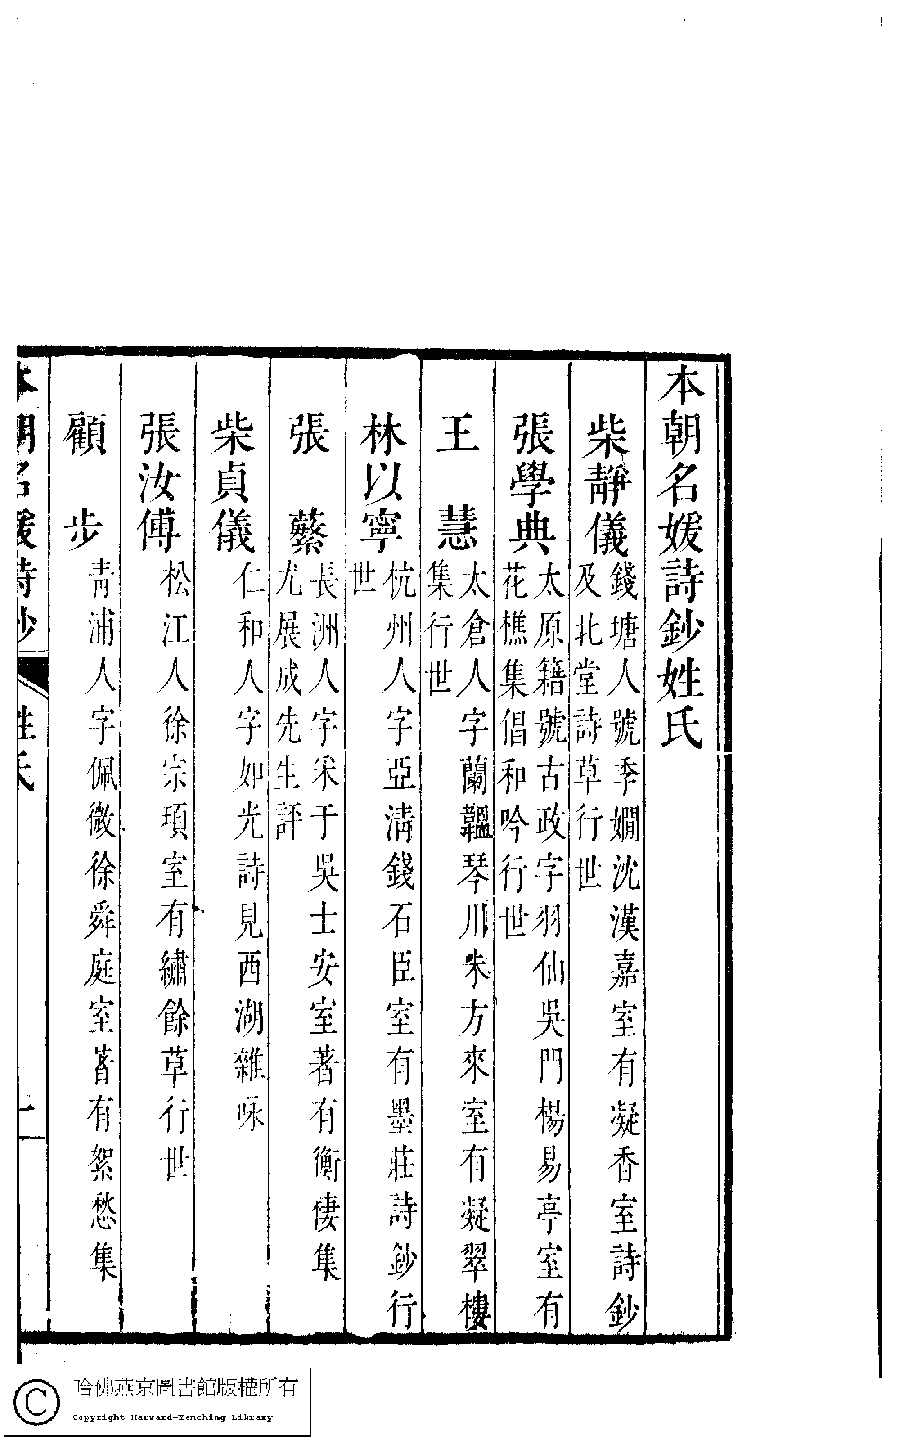 本朝名媛詩鈔姓氏
柴靜儀 錢塘人號季嫺沈漢嘉室有凝香室詩鈔
及北堂詩草行世
張學典 太原籍號古政字羽仙吳門楊易亭室有
花樵集倡和吟行世
王慧 太倉人字蘭韞琴川朱方來室有凝翠樓
集行世
林以寧 杭州人字亞清錢石臣室有墨莊詩鈔行
世
張蘩 長洲人字采于吳士安室著有衡棲集
尤展成先生評
柴貞儀 仁和人字如光詩見西湖雜咏
張汝傅 松江人徐宗項室有繡餘草行世
顧步 青浦人字佩微徐舜庭室著有絮愁集
本朝名媛詩鈔 姓氏 一
哈佛燕京圖書館版權所有
Copyright Harvard-Yenching Library